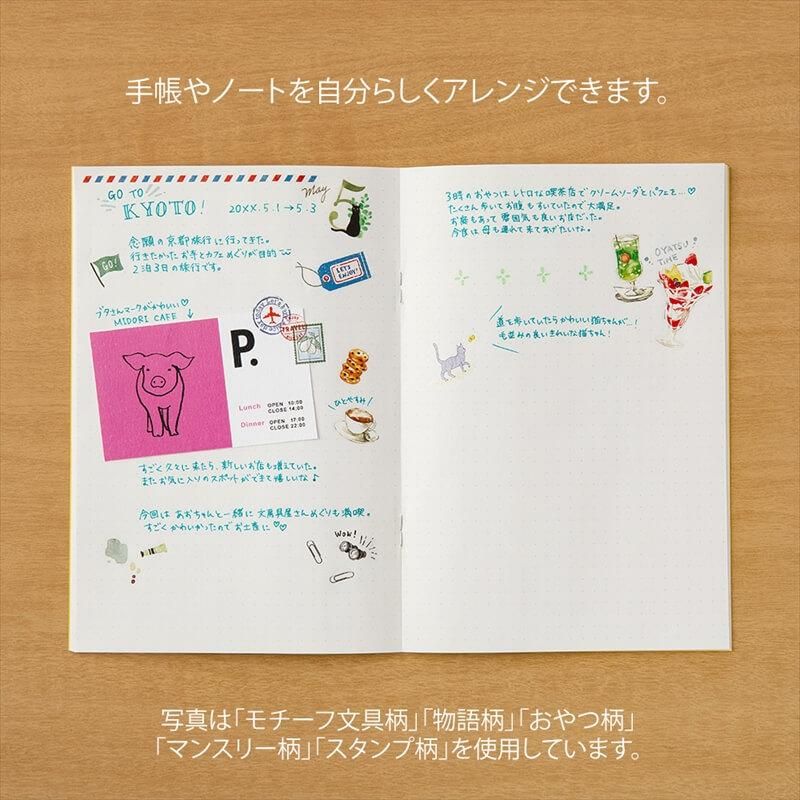 手帳やノートを自分らしくアレンジできます。
GO TO
KYOTO!
20XX.5.1→5.3
May
5
念願の京都旅行に行ってきた。
行きたかったお寺とカフェめぐりが目的
2泊3日の旅行です。
GO!
LET'S
ENJOY!
ブタさんマークがかわいい♡
MIDORI CAFE ↓
TRAVEL
P.
Lunch OPEN 10:00
CLOSE 14:00
Dinner OPEN 17:00
CLOSE 22:00
ひとやすみ
すごく久々に来たら、新しいお店も増えていた。
またお気に入りのスポットができて嬉しいな♪
今回は あおちゃんと一緒に 文房具屋さんめぐりも満喫。
すごくかわいかったのでお土産に♡♡
WOW!
3時のおやつは レトロな喫茶店で クリームソーダとパフェを…♡
たくさん歩いてお腹もすいていたので大満足。
お庭もあって 雰囲気も良いお店だった。
今度は 母も連れて 来てあげたいな。
OYATSU
TIME
道を歩いていたらかわいい猫ちゃんが…!
毛並みの良いきれいな猫ちゃん!
写真は「モチーフ文具柄」「物語柄」「おやつ柄」
「マンスリー柄」「スタンプ柄」を使用しています。